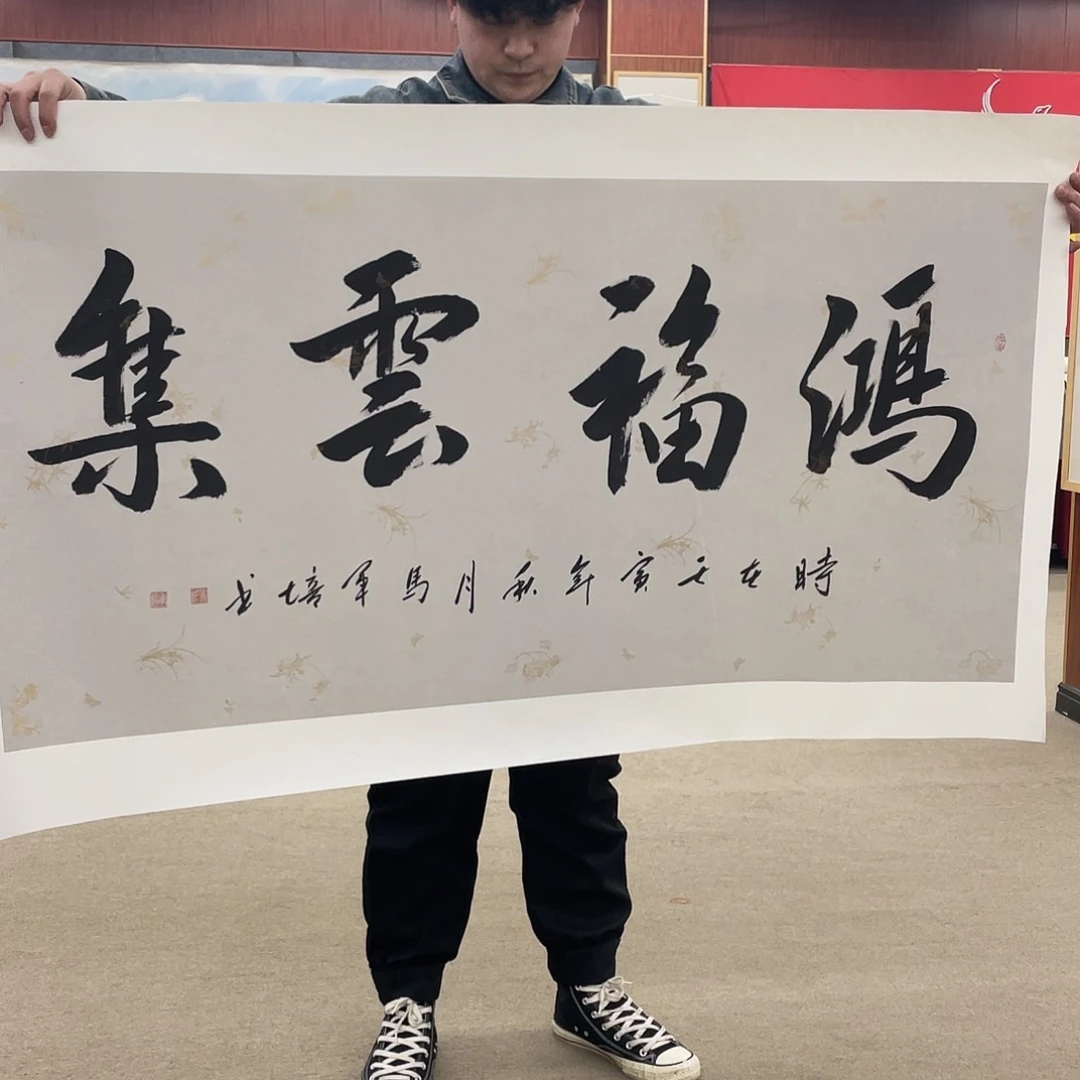 鴻福雲集
時在壬寅年秋月馬軍培书